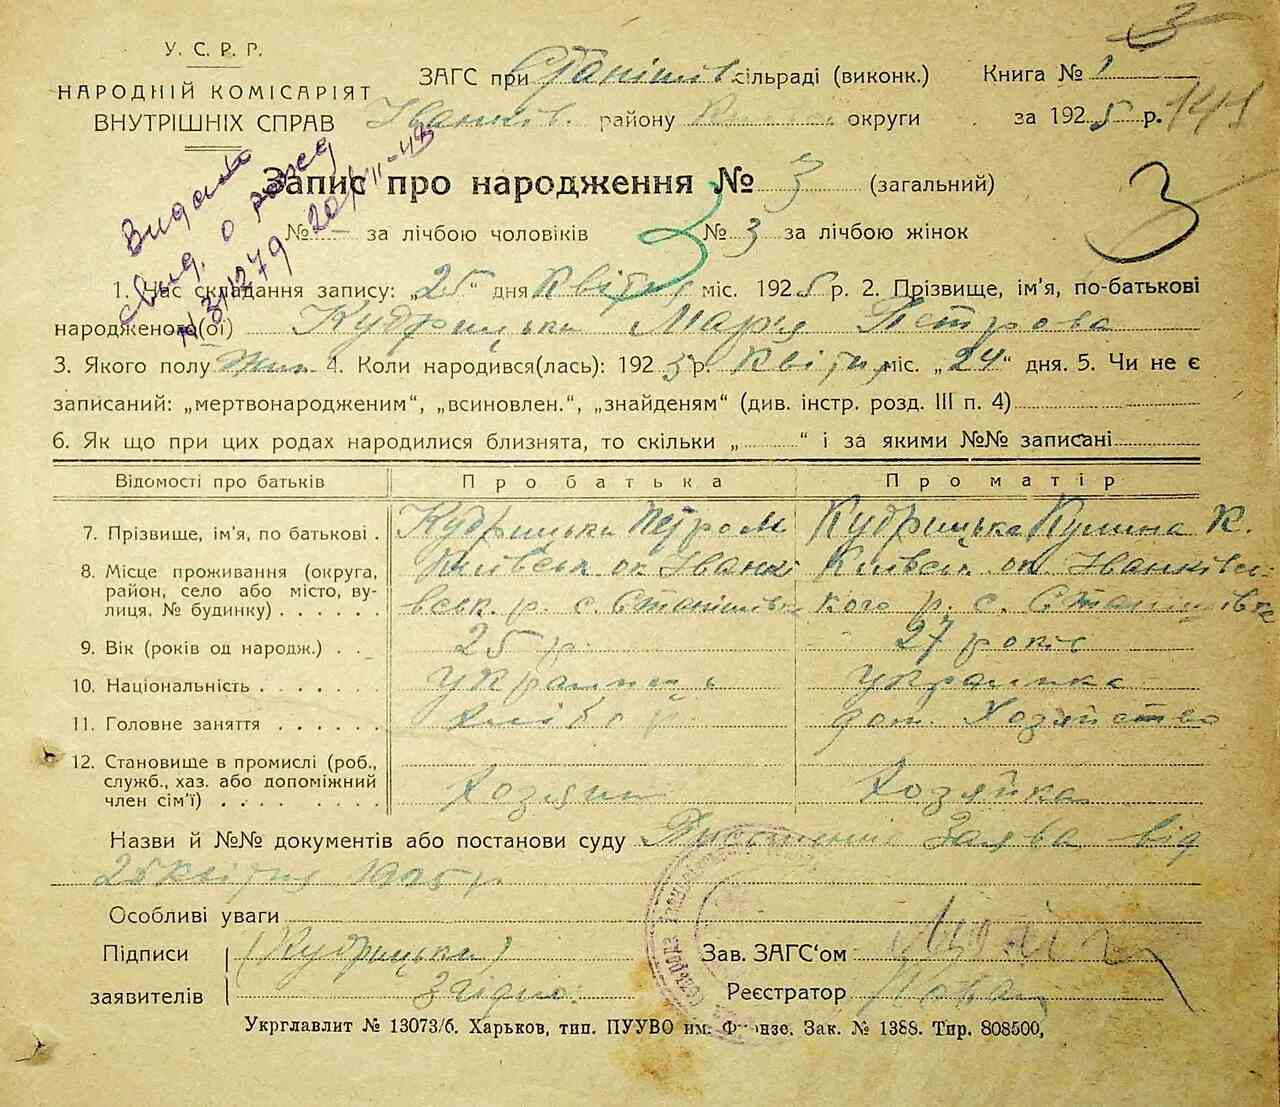 3
У. С. Р. Р.
НАРОДНІЙ КОМІСАРІЯТ
ВНУТРІШНІХ СПРАВ
ЗАГС при Станішів. сільраді (виконк.) Книга № 1
Іванків. району округи за 1925 р.
Запис про народження № 3 (загальний)
3
Видано
свид. о рожд
N 31279
№ – за лічбою чоловіків № 3 за лічбою жінок
3
1. Час складання запису: „25“ дня Квітня міс. 1925 р. 2. Прізвище, ім'я, по-батькові
народженого(ої) Кудрицька Марія Петрова
3. Якого полу Жін. 4. Коли народився(лась): 1925 р. Квітня міс. „24“ дня. 5. Чи не є
записаний: „мертвонародженим“, „всиновлен.“, „знайденям“ (див. інстр. розд. III п. 4)
6. Як що при цих родах народилися близнята, то скільки „ “ і за якими №№ записані
Відомості про батьків Про батька Про матір
7. Прізвище, ім'я, по батькові . Кудрицьки Петро М Кудрицька Кулина К.
8. Місце проживання (округа, Київськ ок Іванкі Київськ ок. Іванківсь-
район, село або місто, ву- вськ. р. с. Станішівка кого р. с. Станішівка
лиця. № будинку) . . . . . .
9. Вік (років од народж.) . . 25 р. 27 років
10. Національність . . . . . . . Українець Українка
11. Головне заняття . . . . . . Хлібор. дом. Хозяйство
12. Становище в промислі (роб.,
служб., хаз. або допоміжний Хозяин Хозяйка
член сім'ї) . . . . . . . .
Назви й №№ документів або постанови суду Заява від
25 квітня 1925 р.
Особливі уваги
Підписи (Кудрицьки) Зав. ЗАГС'ом
заявителів Згідно: Реєстратор
Укрглавлит № 13073/б. Харьков, тип. ПУУВО им. Фрунзе. Зак. № 1388. Тир. 808500,